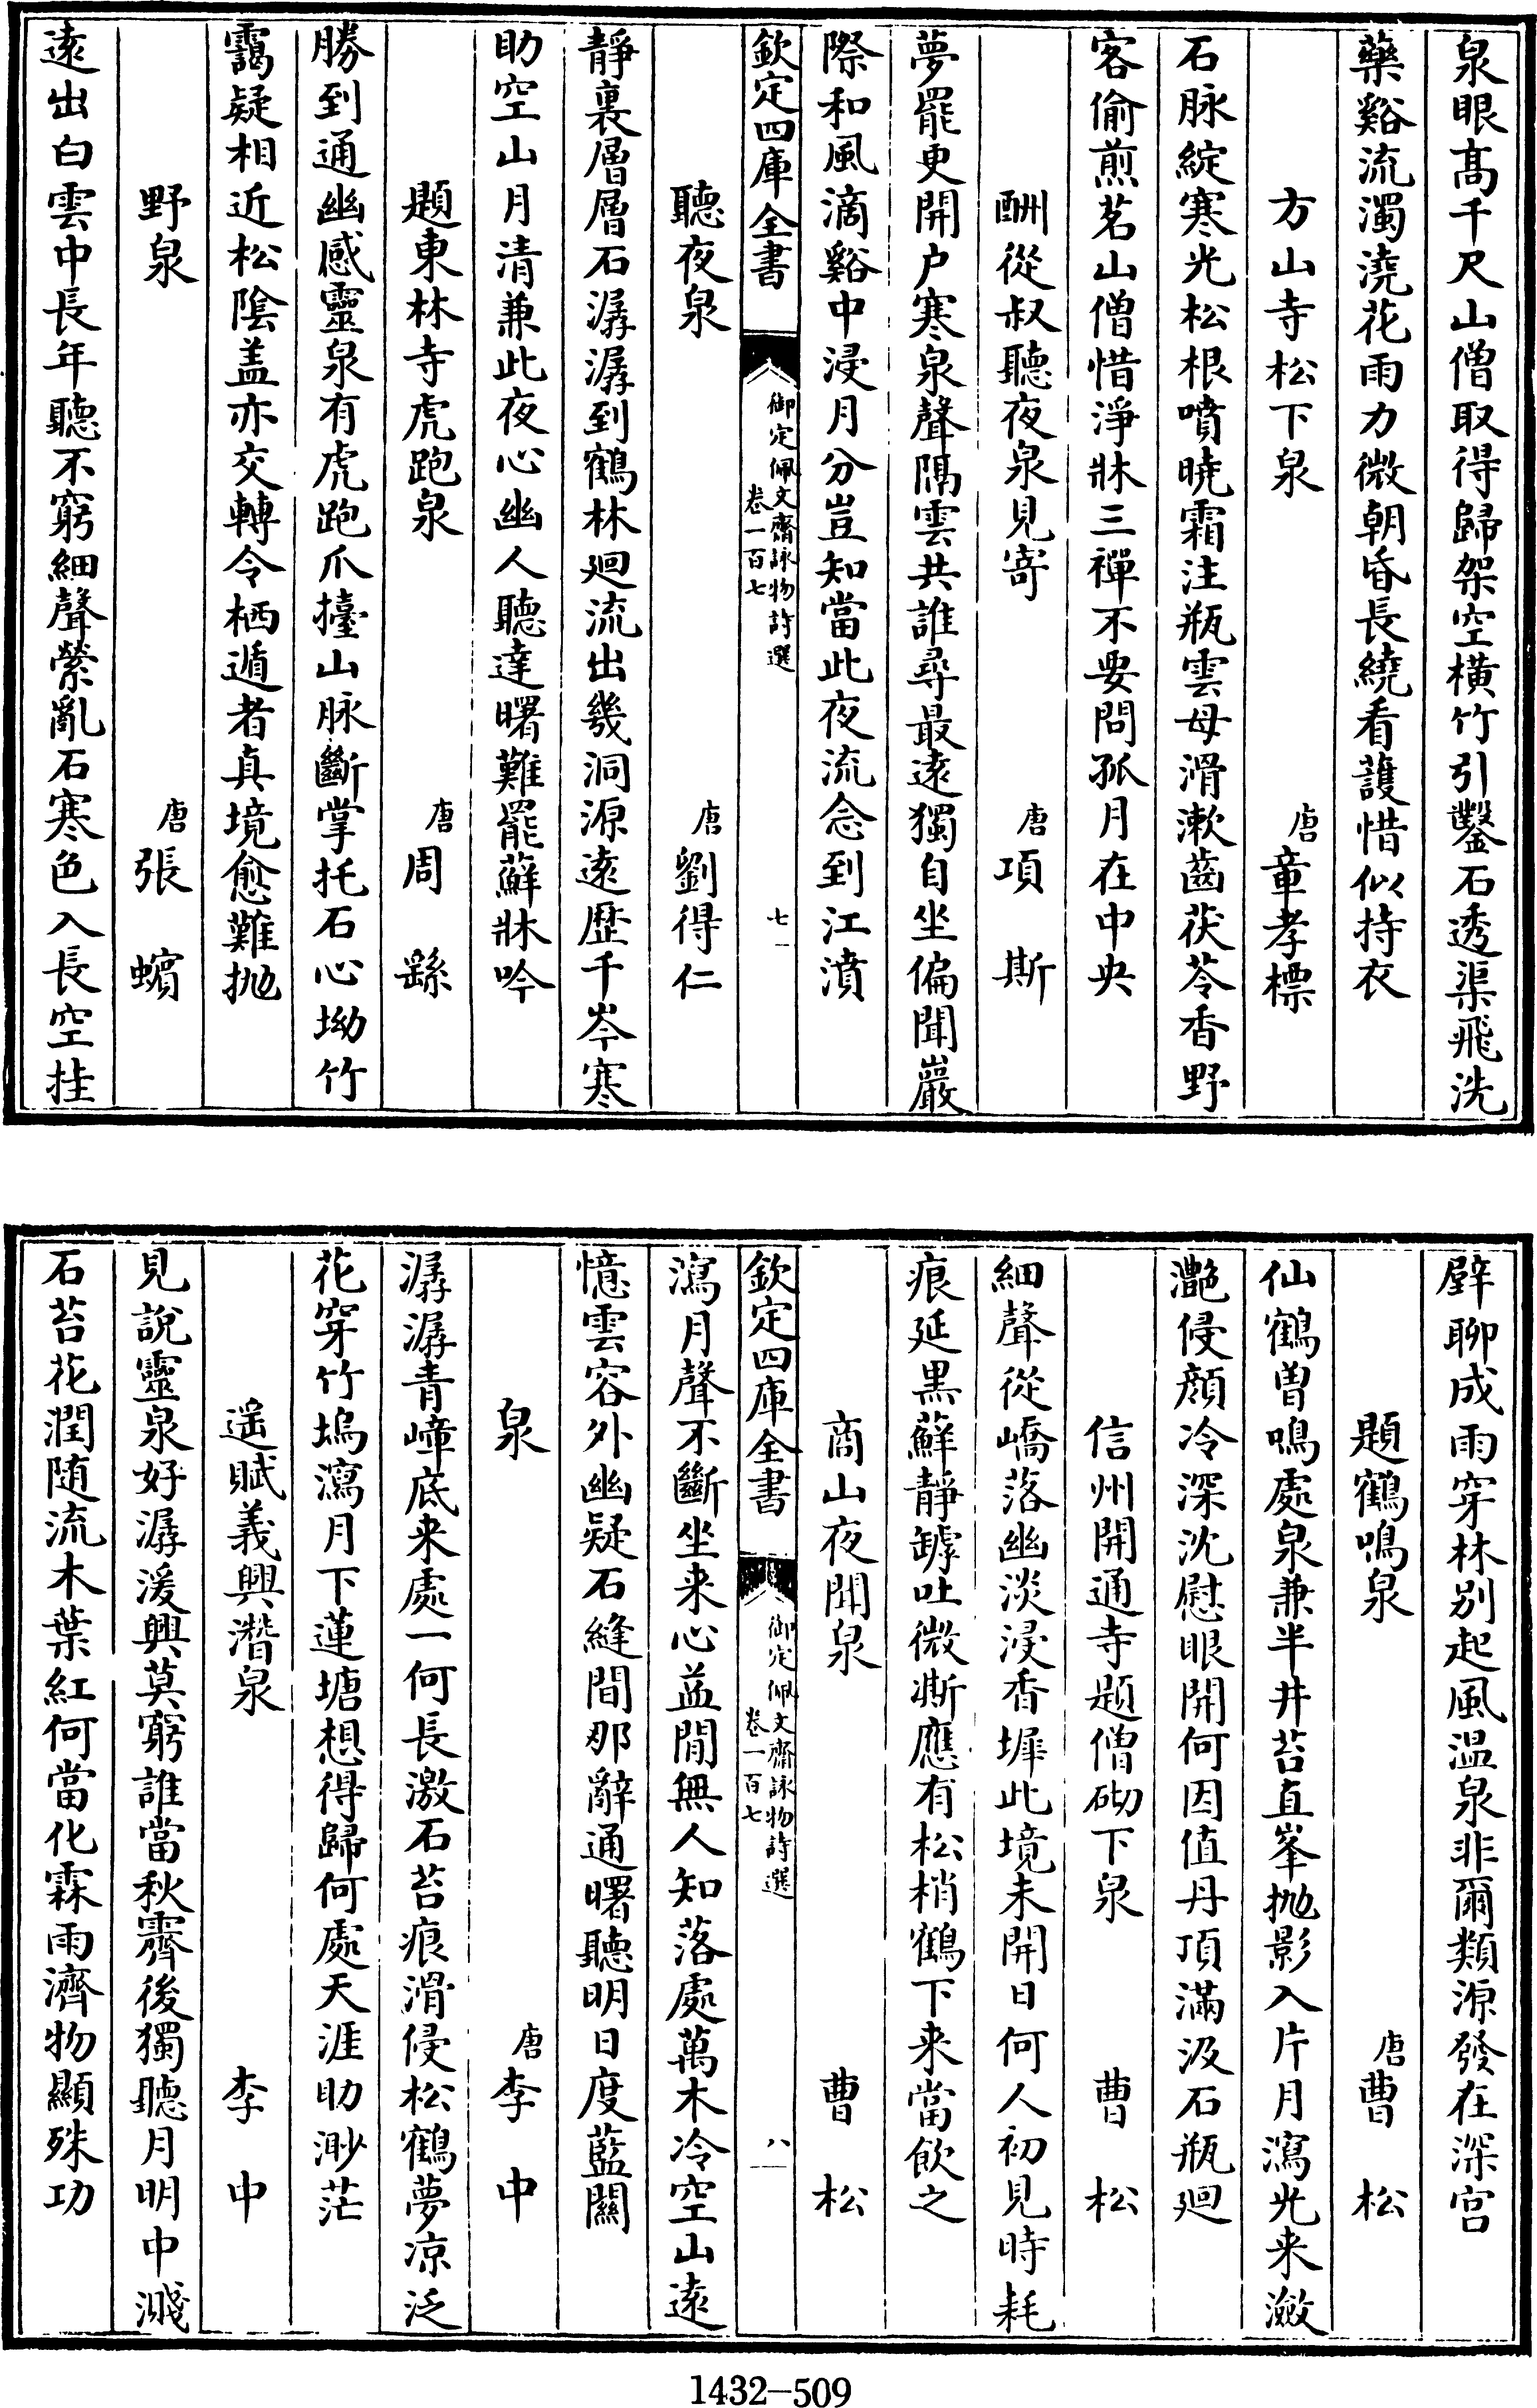 泉眼髙千尺山僧取得歸架空横竹引鑿石透渠飛洗
藥谿流濁澆花雨力微朝昏長繞看護惜似持衣
方山寺松下泉　唐章孝標
石脉綻寒光松根噴曉霜注瓶雲母滑漱齒茯苓香野
客偷煎茗山僧惜淨牀三禪不要問孤月在中央
酬從叔聽夜泉見寄　唐項斯
夢罷更開户寒泉聲隔雲共誰尋最逺獨自坐偏聞巖
際和風滴谿中浸月分豈知當此夜流念到江濆
欽定四庫全書　御定佩文齋詠物詩選　卷一百七　七
聽夜泉　唐劉得仁
靜裏層層石潺潺到鶴林廻流出幾洞源逺歷千岑寒
助空山月清兼此夜心幽人聽達曙難罷蘚牀吟
題東林寺虎跑泉　唐周繇
勝到通幽感靈泉有虎跑爪擡山脉斷掌托石心坳竹
靄疑相近松陰盖亦交轉令栖遁者真境愈難抛
野泉　唐張蠙
逺出白雲中長年聽不窮細聲縈亂石寒色入長空挂
壁聊成雨穿林别起風温泉非爾類源發在深宫
題鶴鳴泉　唐曹松
仙鶴曽鳴處泉兼半井苔直峯抛影入片月瀉光来潋
灔侵顔冷深沈慰眼開何因值丹頂滿汲石瓶廻
信州開通寺題僧砌下泉　曹松
細聲從嶠落幽淡浸香墀此境未開日何人初見時耗
痕延黒蘚靜罅吐微澌應有松梢鶴下来當飲之
商山夜聞泉　曹松
欽定四庫全書　御定佩文齋詠物詩選　卷一百七　八
瀉月聲不斷坐来心益閒無人知落處萬木冷空山逺
憶雲容外幽疑石縫間那辭通曙聽明日度藍關
泉　唐李中
潺潺青嶂底来處一何長激石苔痕滑侵松鶴夢凉泛
花穿竹塢瀉月下蓮塘想得歸何處天涯助渺茫
遥賦義興潛泉　李中
見說靈泉好潺湲興莫窮誰當秋霽後獨聽月明中濺
石苔花潤随流木葉紅何當化霖雨濟物顯殊功
1432-509